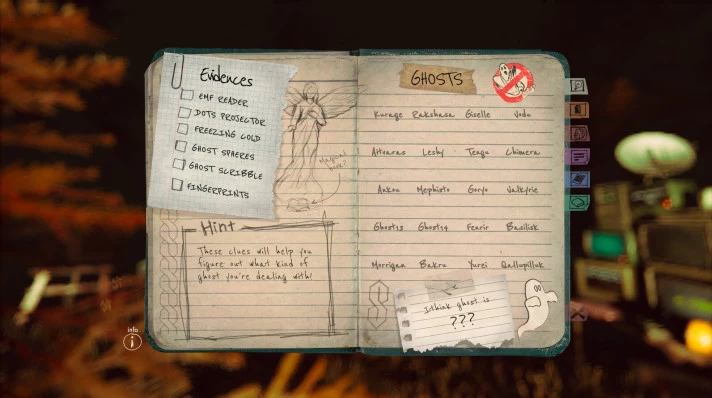 Evidences
EMF READER
DOTS PROJECTOR
FREEZING COLD
GHOST SPHERES
GHOST SCRIBBLE
FINGERPRINTS
Magical
Hint
These clues will help you
figure out what kind of
ghost you're dealing with!
info
i
GHOSTS
Kurage Rakshasa Giselle Vodu
Leshy Tengu Chimera
Ankou Mephisto Goryo Valkyrie
Ghost13 Ghost14 Fenrir Basilisk
Morrigan Bakru Yurei Qallupilluk
I think ghost is
???